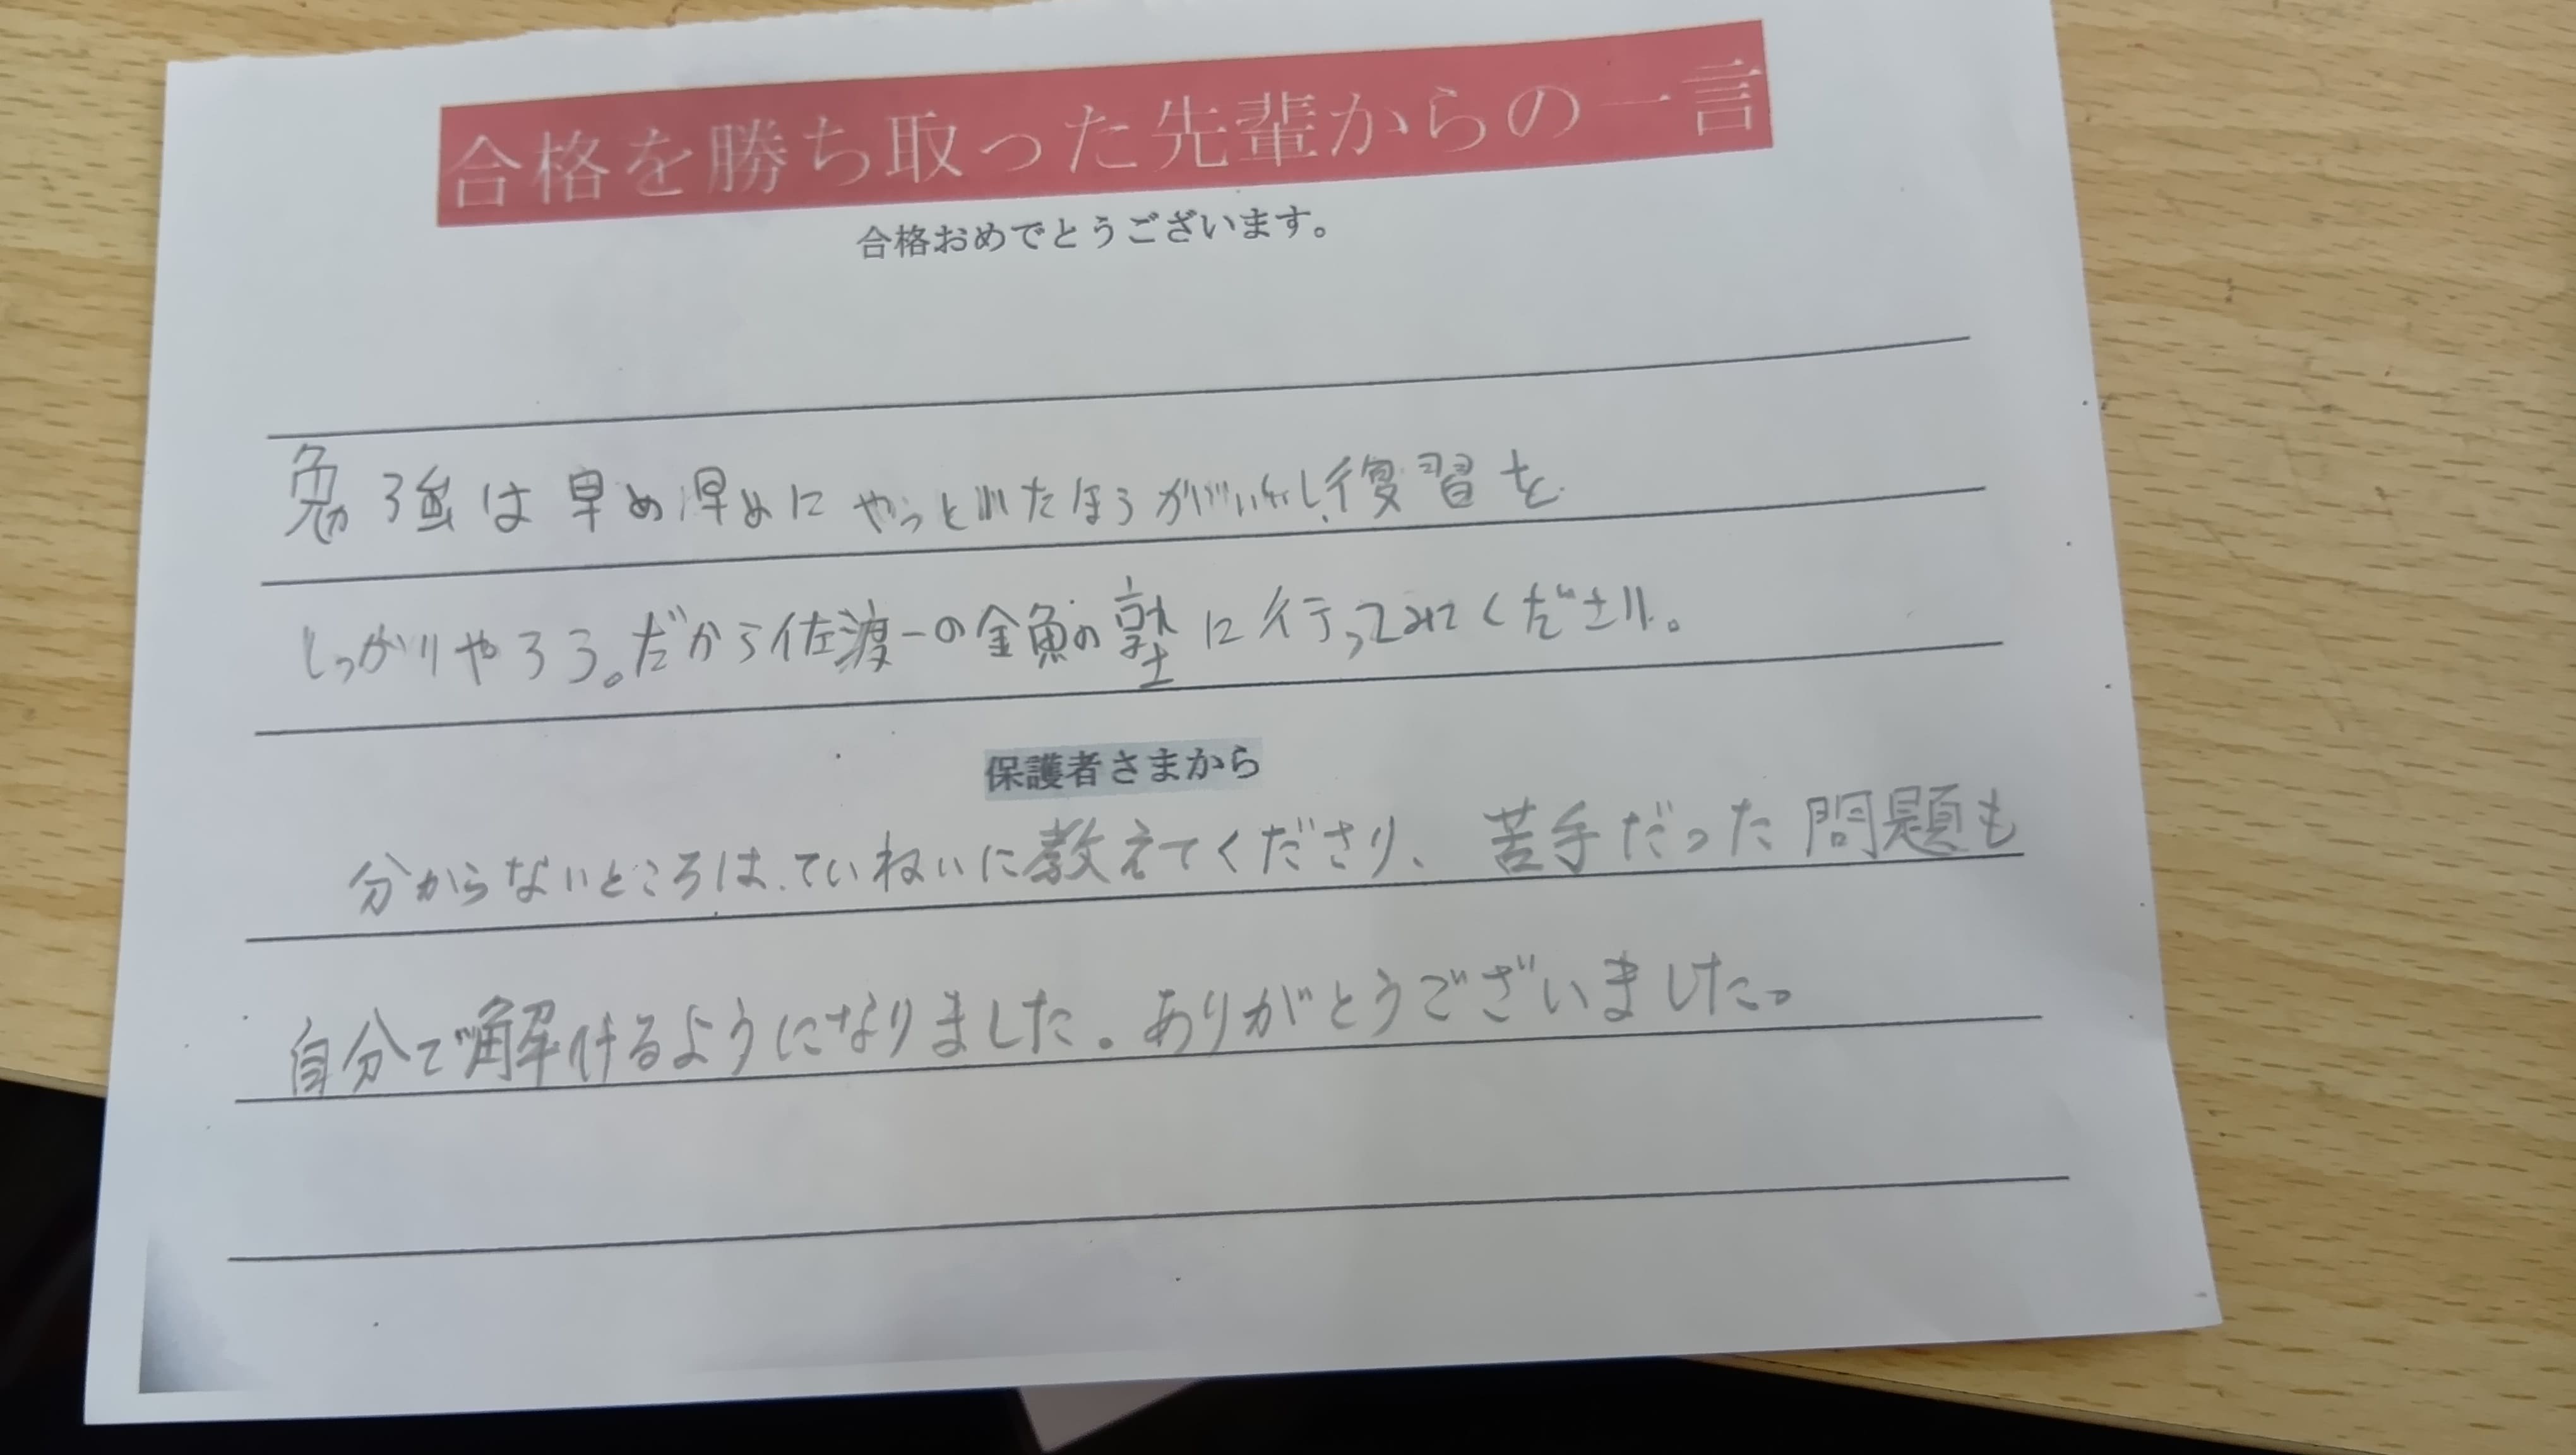 合格を勝ち取った先輩からの一言
合格おめでとうございます。
勉強は早め早めにやっといたほうがいいし、復習を
しっかりやろう。だから佐渡一の金魚の塾に行ってみてください。
保護者さまから
分からないところは、ていねいに教えてくださり、苦手だった問題も
自分で解けるようになりました。ありがとうございました。